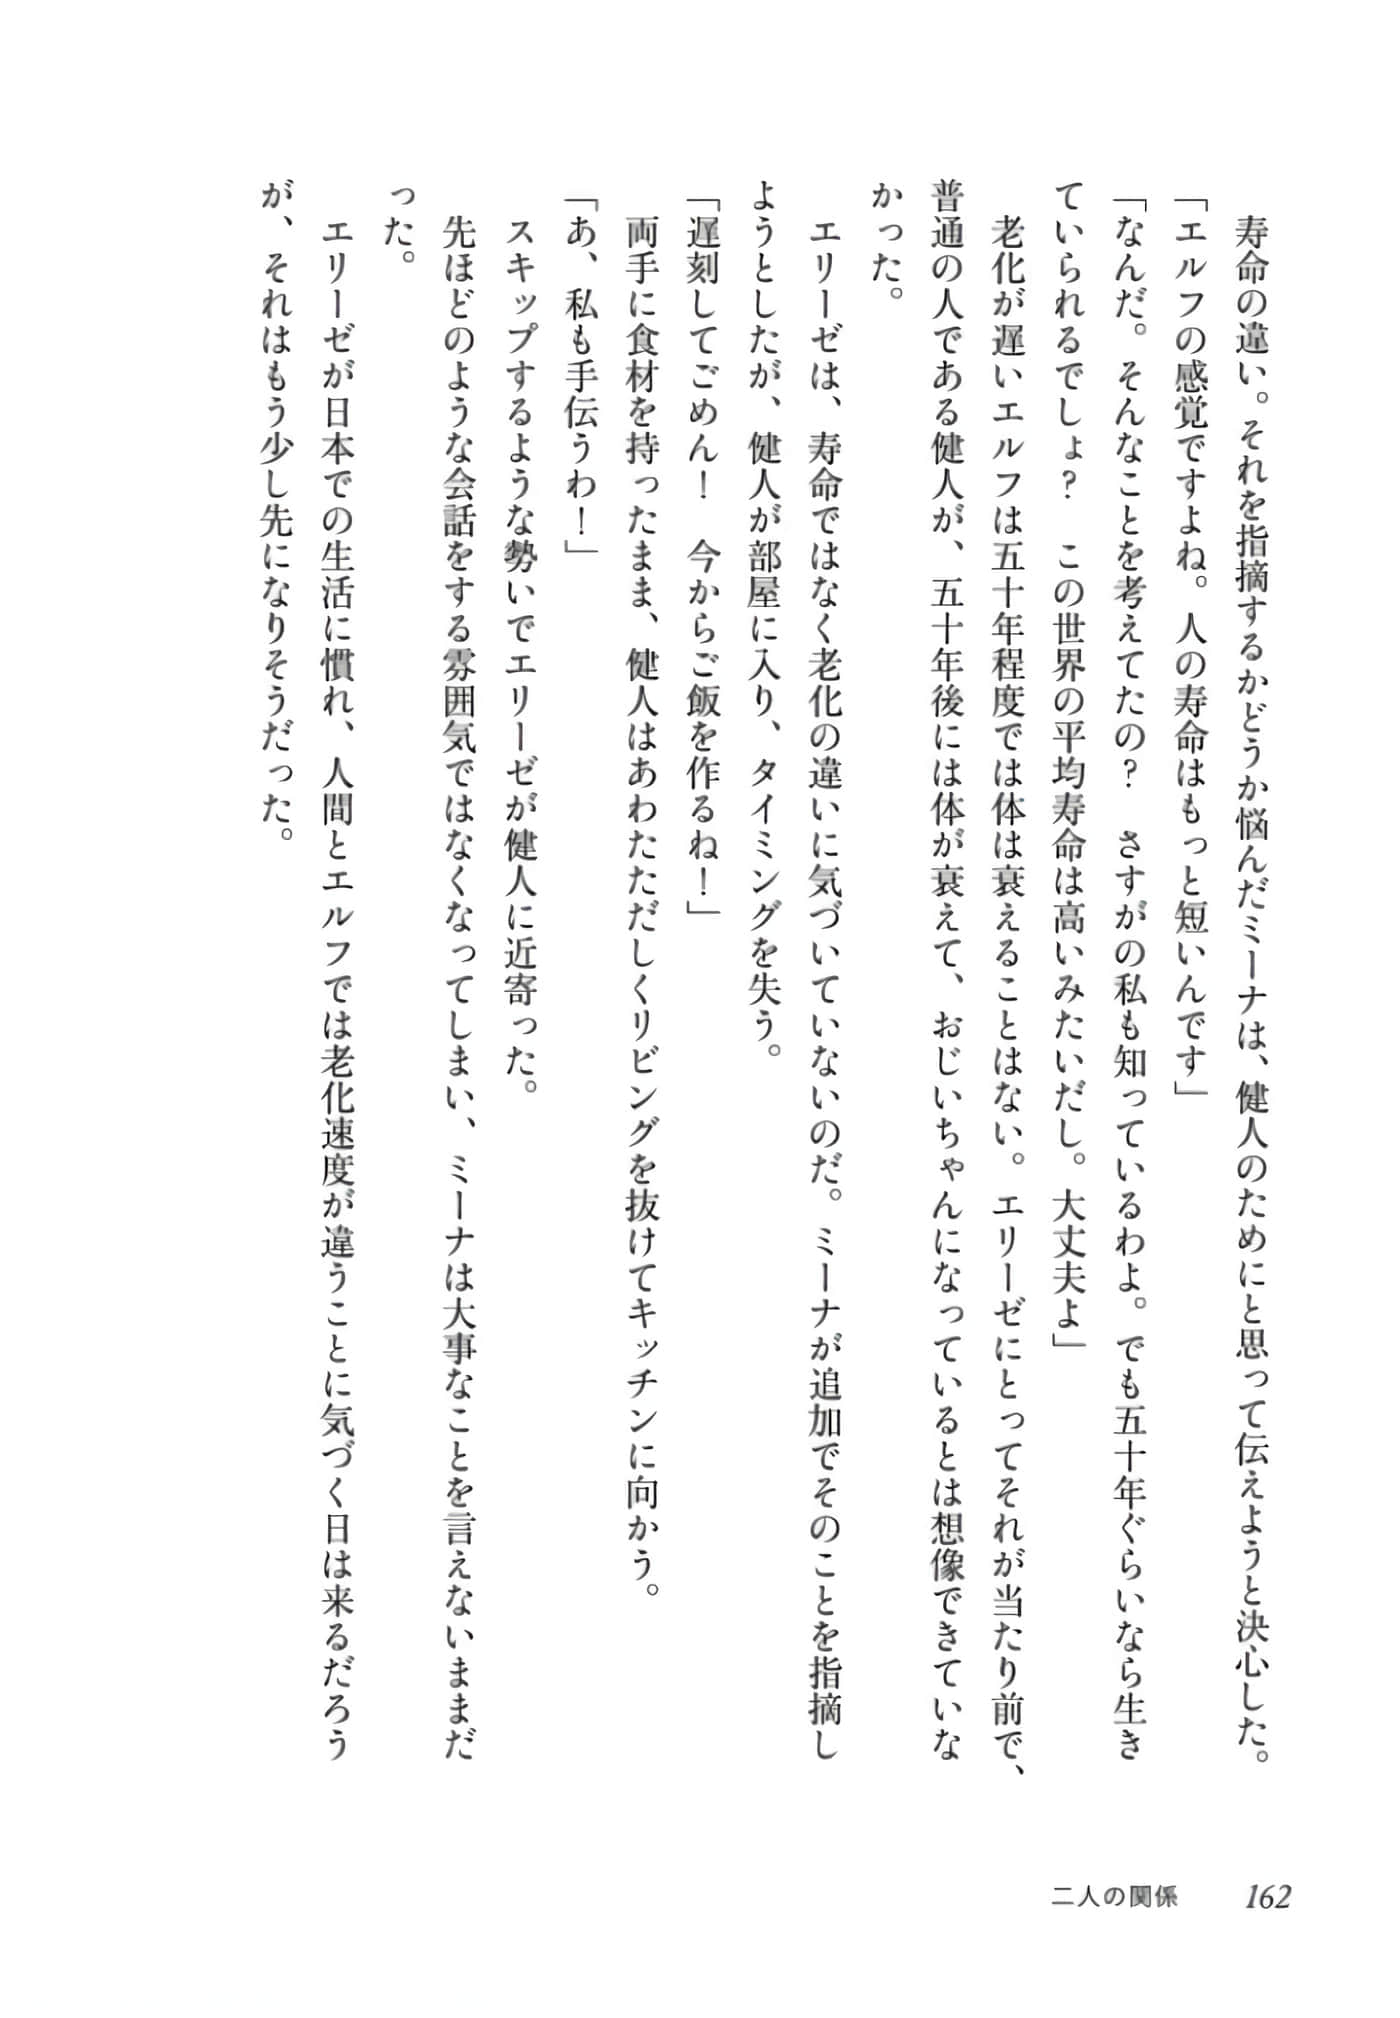 寿命の違い。それを指摘するかどうか悩んだミーナは、健人のためにと思って伝えようと決心した。
「エルフの感覚ですよね。人の寿命はもっと短いんです」
「なんだ。そんなことを考えてたの？　さすがの私も知っているわよ。でも五十年ぐらいなら生き
ていられるでしょ？　この世界の平均寿命は高いみたいだし。大丈夫よ」
老化が遅いエルフは五十年程度では体は衰えることはない。エリーゼにとってそれが当たり前で、
普通の人である健人が、五十年後には体が衰えて、おじいちゃんになっているとは想像できていな
かった。
エリーゼは、寿命ではなく老化の違いに気づいていないのだ。ミーナが追加でそのことを指摘し
ようとしたが、健人が部屋に入り、タイミングを失う。
「遅刻してごめん！　今からご飯を作るね！」
両手に食材を持ったまま、健人はあわただしくリビングを抜けてキッチンに向かう。
「あ、私も手伝うわ！」
スキップするような勢いでエリーゼが健人に近寄った。
先ほどのような会話をする雰囲気ではなくなってしまい、ミーナは大事なことを言えないままだ
った。
エリーゼが日本での生活に慣れ、人間とエルフでは老化速度が違うことに気づく日は来るだろう
が、それはもう少し先になりそうだった。
二人の関係
162